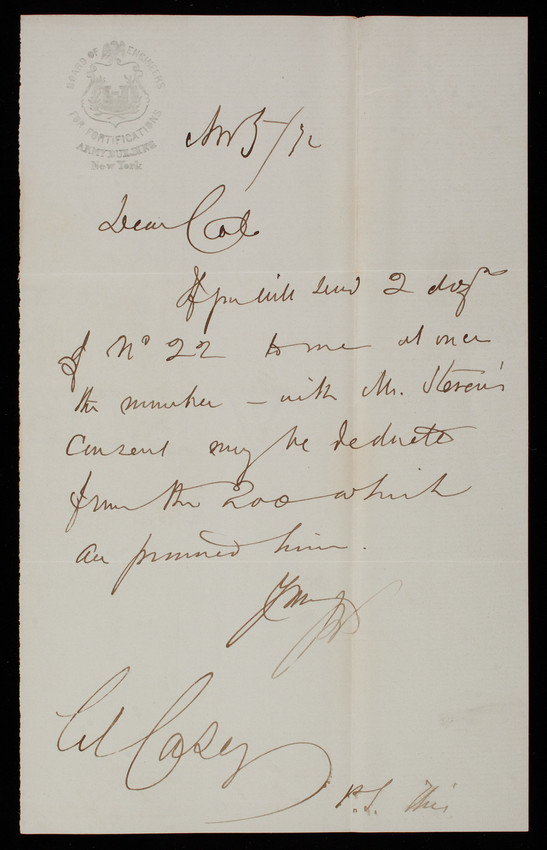 BOARD OF ENGINEERS
FOR FORTIFICATIONS
ARMY BUILDING
New York
5/72
Dear Col
If you will send 2 doz
of No 22 to me at once
the number - with Mr. Steven's
consent may be deducted
from the 200 which
are promised him.
Col Casey
P.S. This